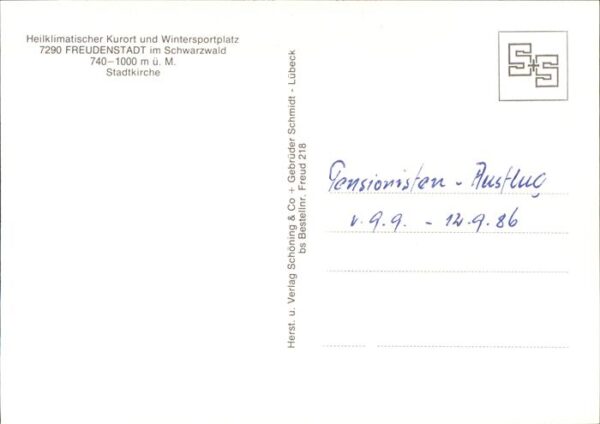 Heilklimatischer Kurort und Wintersportplatz
7290 FREUDENSTADT im Schwarzwald
740–1000 m ü. M.
Stadtkirche
Herst. u. Verlag Schöning & Co + Gebrüder Schmidt - Lübeck
bs Bestellnr. Freud 218
S+S
Pensionisten - Ausflug
v. 9.9. - 12.9.86